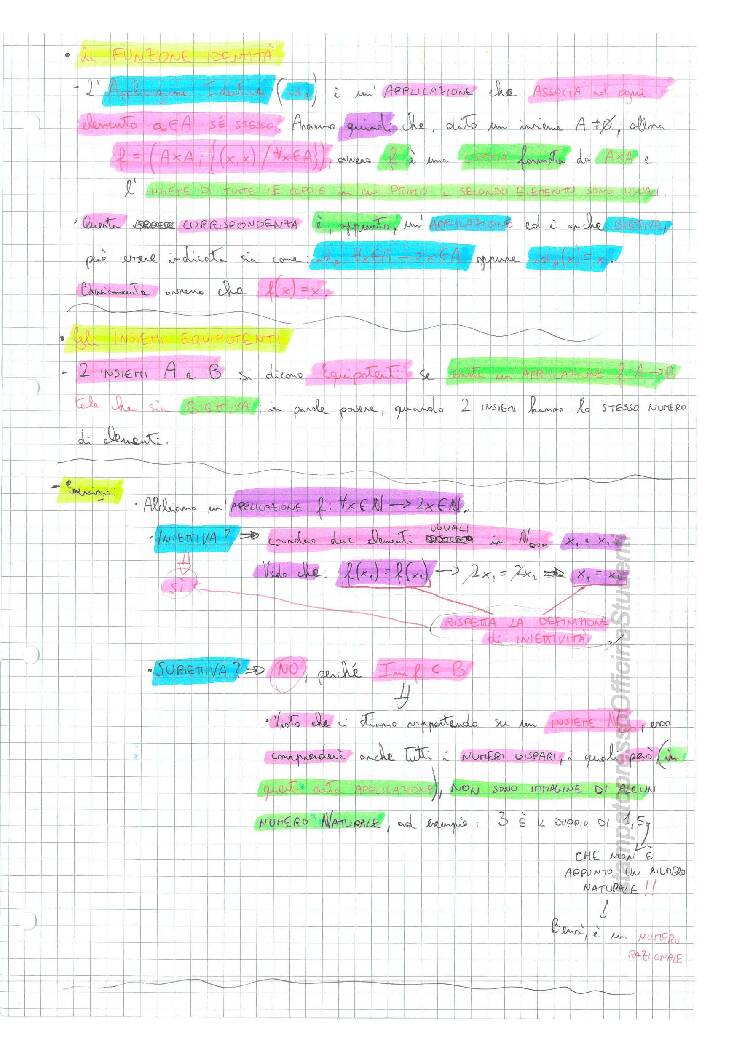 • la FUNZIONE IDENTITÀ
- L' Applicazione Identica (idA) è un' APPLICAZIONE che ASSOCIA ad ogni
elemento a∈A SE STESSO. Avremo quindi che, dato un insieme A≠∅, allora
f = (A×A; {(x,x) / ∀x∈A}), ovvero f è una formata da A×A e
l' INSIEME DI TUTTE LE COPPIE in cui PRIMO e SECONDO ELEMENTO SONO UGUALI.
• Questa CORRISPONDENZA è, appunto, un' APPLICAZIONE ed è anche BIETTIVA,
può essere indicata sia come: idA: ∀x∈A → x∈A oppure idA(x) = x.
Chiaramente avremo che f(x) = x.
• Gli INSIEMI EQUIPOTENTI
- 2 INSIEMI A e B si dicono Equipotenti se esiste un' APPLICAZIONE f: A → B
tale che sia BIETTIVA in parole povere, quando 2 INSIEMI hanno lo STESSO NUMERO
di elementi.
- Esercizio:
• Abbiamo un' APPLICAZIONE f: ∀x∈N → 2x∈N.
• INIETTIVA? ⇒ considero due elementi UGUALI in N x₁ e x₂
Vedo che: f(x₁) = f(x₂) → 2x₁ = 2x₂ ⇒ x₁ = x₂
SÌ
RISPETTA LA DEFINIZIONE
di INIETTIVITÀ
• SURIETTIVA? ⇒ NO, perché Im f ⊂ B
• Visto che ci stiamo rapportando su un INSIEME N, esso
comprenderà anche tutti i NUMERI DISPARI, i quali però (in
questa APPLICAZIONE), NON SONO IMMAGINE DI ALCUN
NUMERO NATURALE, ad esempio: 3 È IL DOPPIO DI 1,5
CHE NON È
APPUNTO UN NUMERO
NATURALE!!
Bensì, è un NUMERO
RAZIONALE
StampatopressoOfficinaStudenti